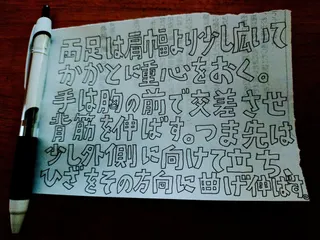 両足は肩幅より少し広いて
かかとに重心をおく。
手は胸の前で交差させ
背筋を伸ばす。つま先は
少し外側に向けて立ち、
ひざをその方向に曲げ伸ばす。